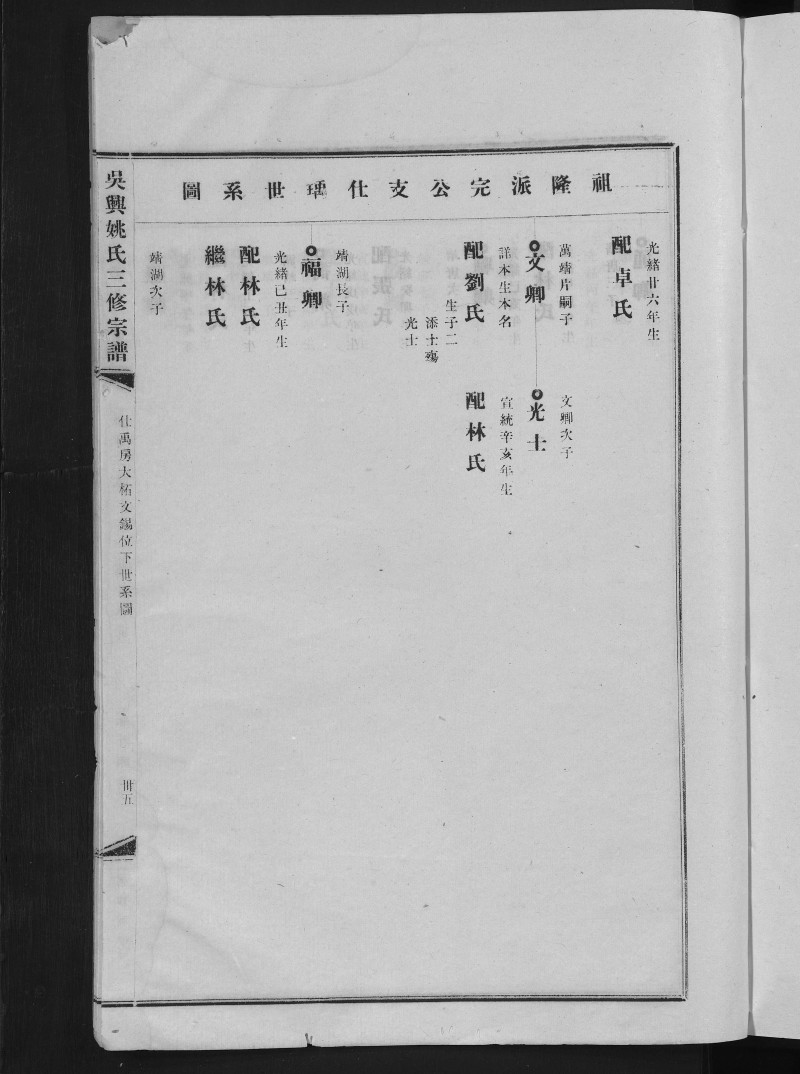 祖隆派完公支仕瑀世系圖
光緒廿六年生
配卓氏
萬靖片嗣子生
文卿
詳本生本名
配劉氏
生子二
添士殤
光士
文卿次子
光士
宣統辛亥年生
配林氏
靖湖長子
福卿
光緒己丑年生
配林氏
繼林氏
靖湖次子
吳興姚氏三修宗譜
仕禹房大柘文錫位下世系圖
卅五